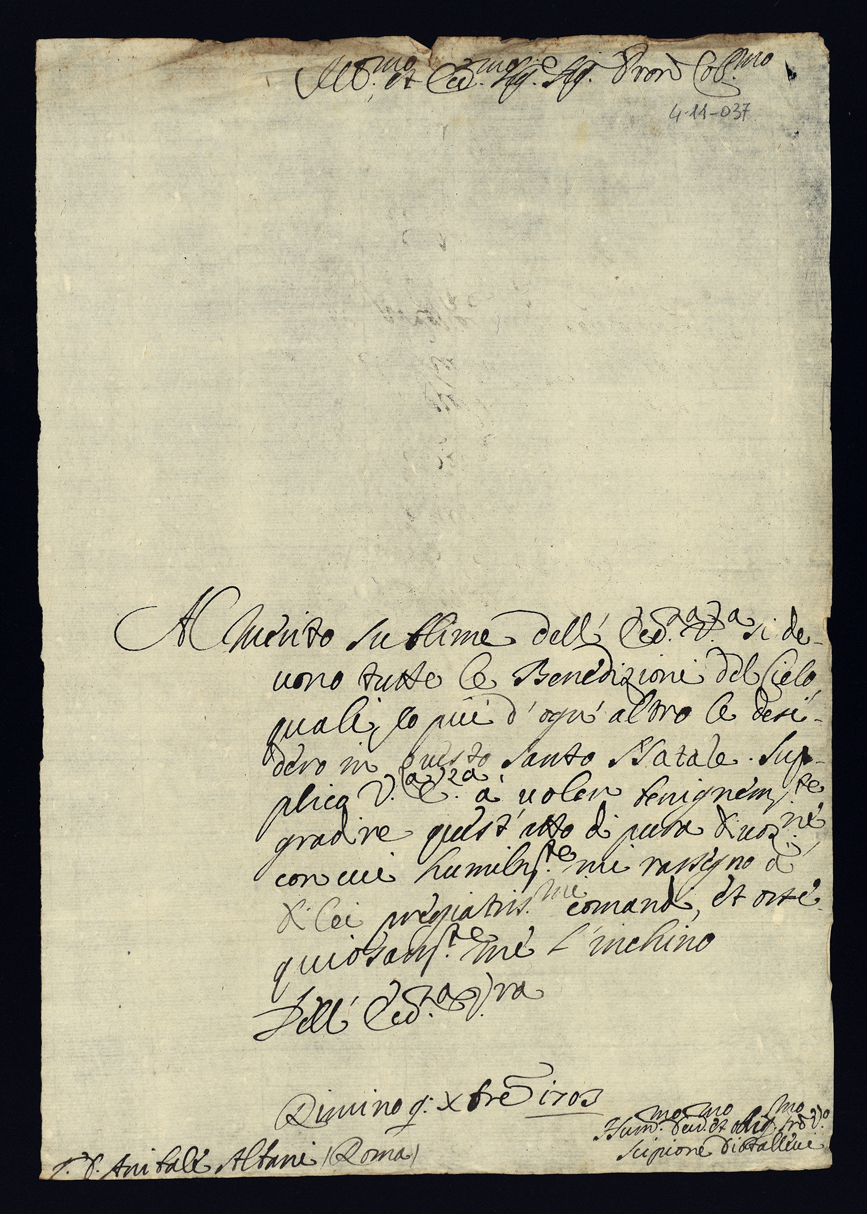 Ill.mo et Ecc.mo Sig.r Sig. Pron Col.mo
4-11-037
Al Merito sublime dell' Ecc.a V.a si de-
uono tutte le Benedizioni del Cielo,
quali, io più d'ogn' altro le desi-
dero in questo santo Natale. Sup-
plico V.a E.za à uoler benignam.te
gradire quest' atto di pura
con cui humiliss.te mi rassegno à
di lei pregiatiss.mi comandi, et osse-
quiosam.te me l'inchino
Dell' Ecc.a Vra
Rimino 9: Xbre 1703
Hum.mo Deu.mo et oblig.mo
Scipione Diotalleui
S. D. Anibale Albani (Roma)